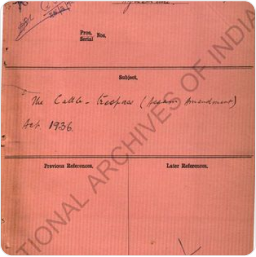 Prev. Serial Nos.
Subject.
The Cattle-Trespass (Assam Amendment)
Act 1936.
Previous References.
Later References.
NATIONAL ARCHIVES OF INDIA